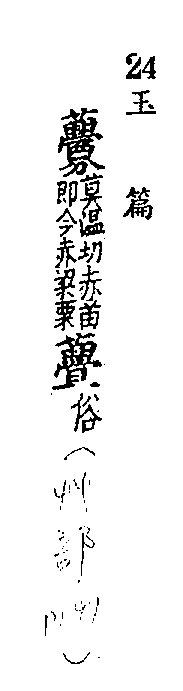 24玉篇
虋
莫温切赤苗
即今赤粱粟
俗
（艸部
）